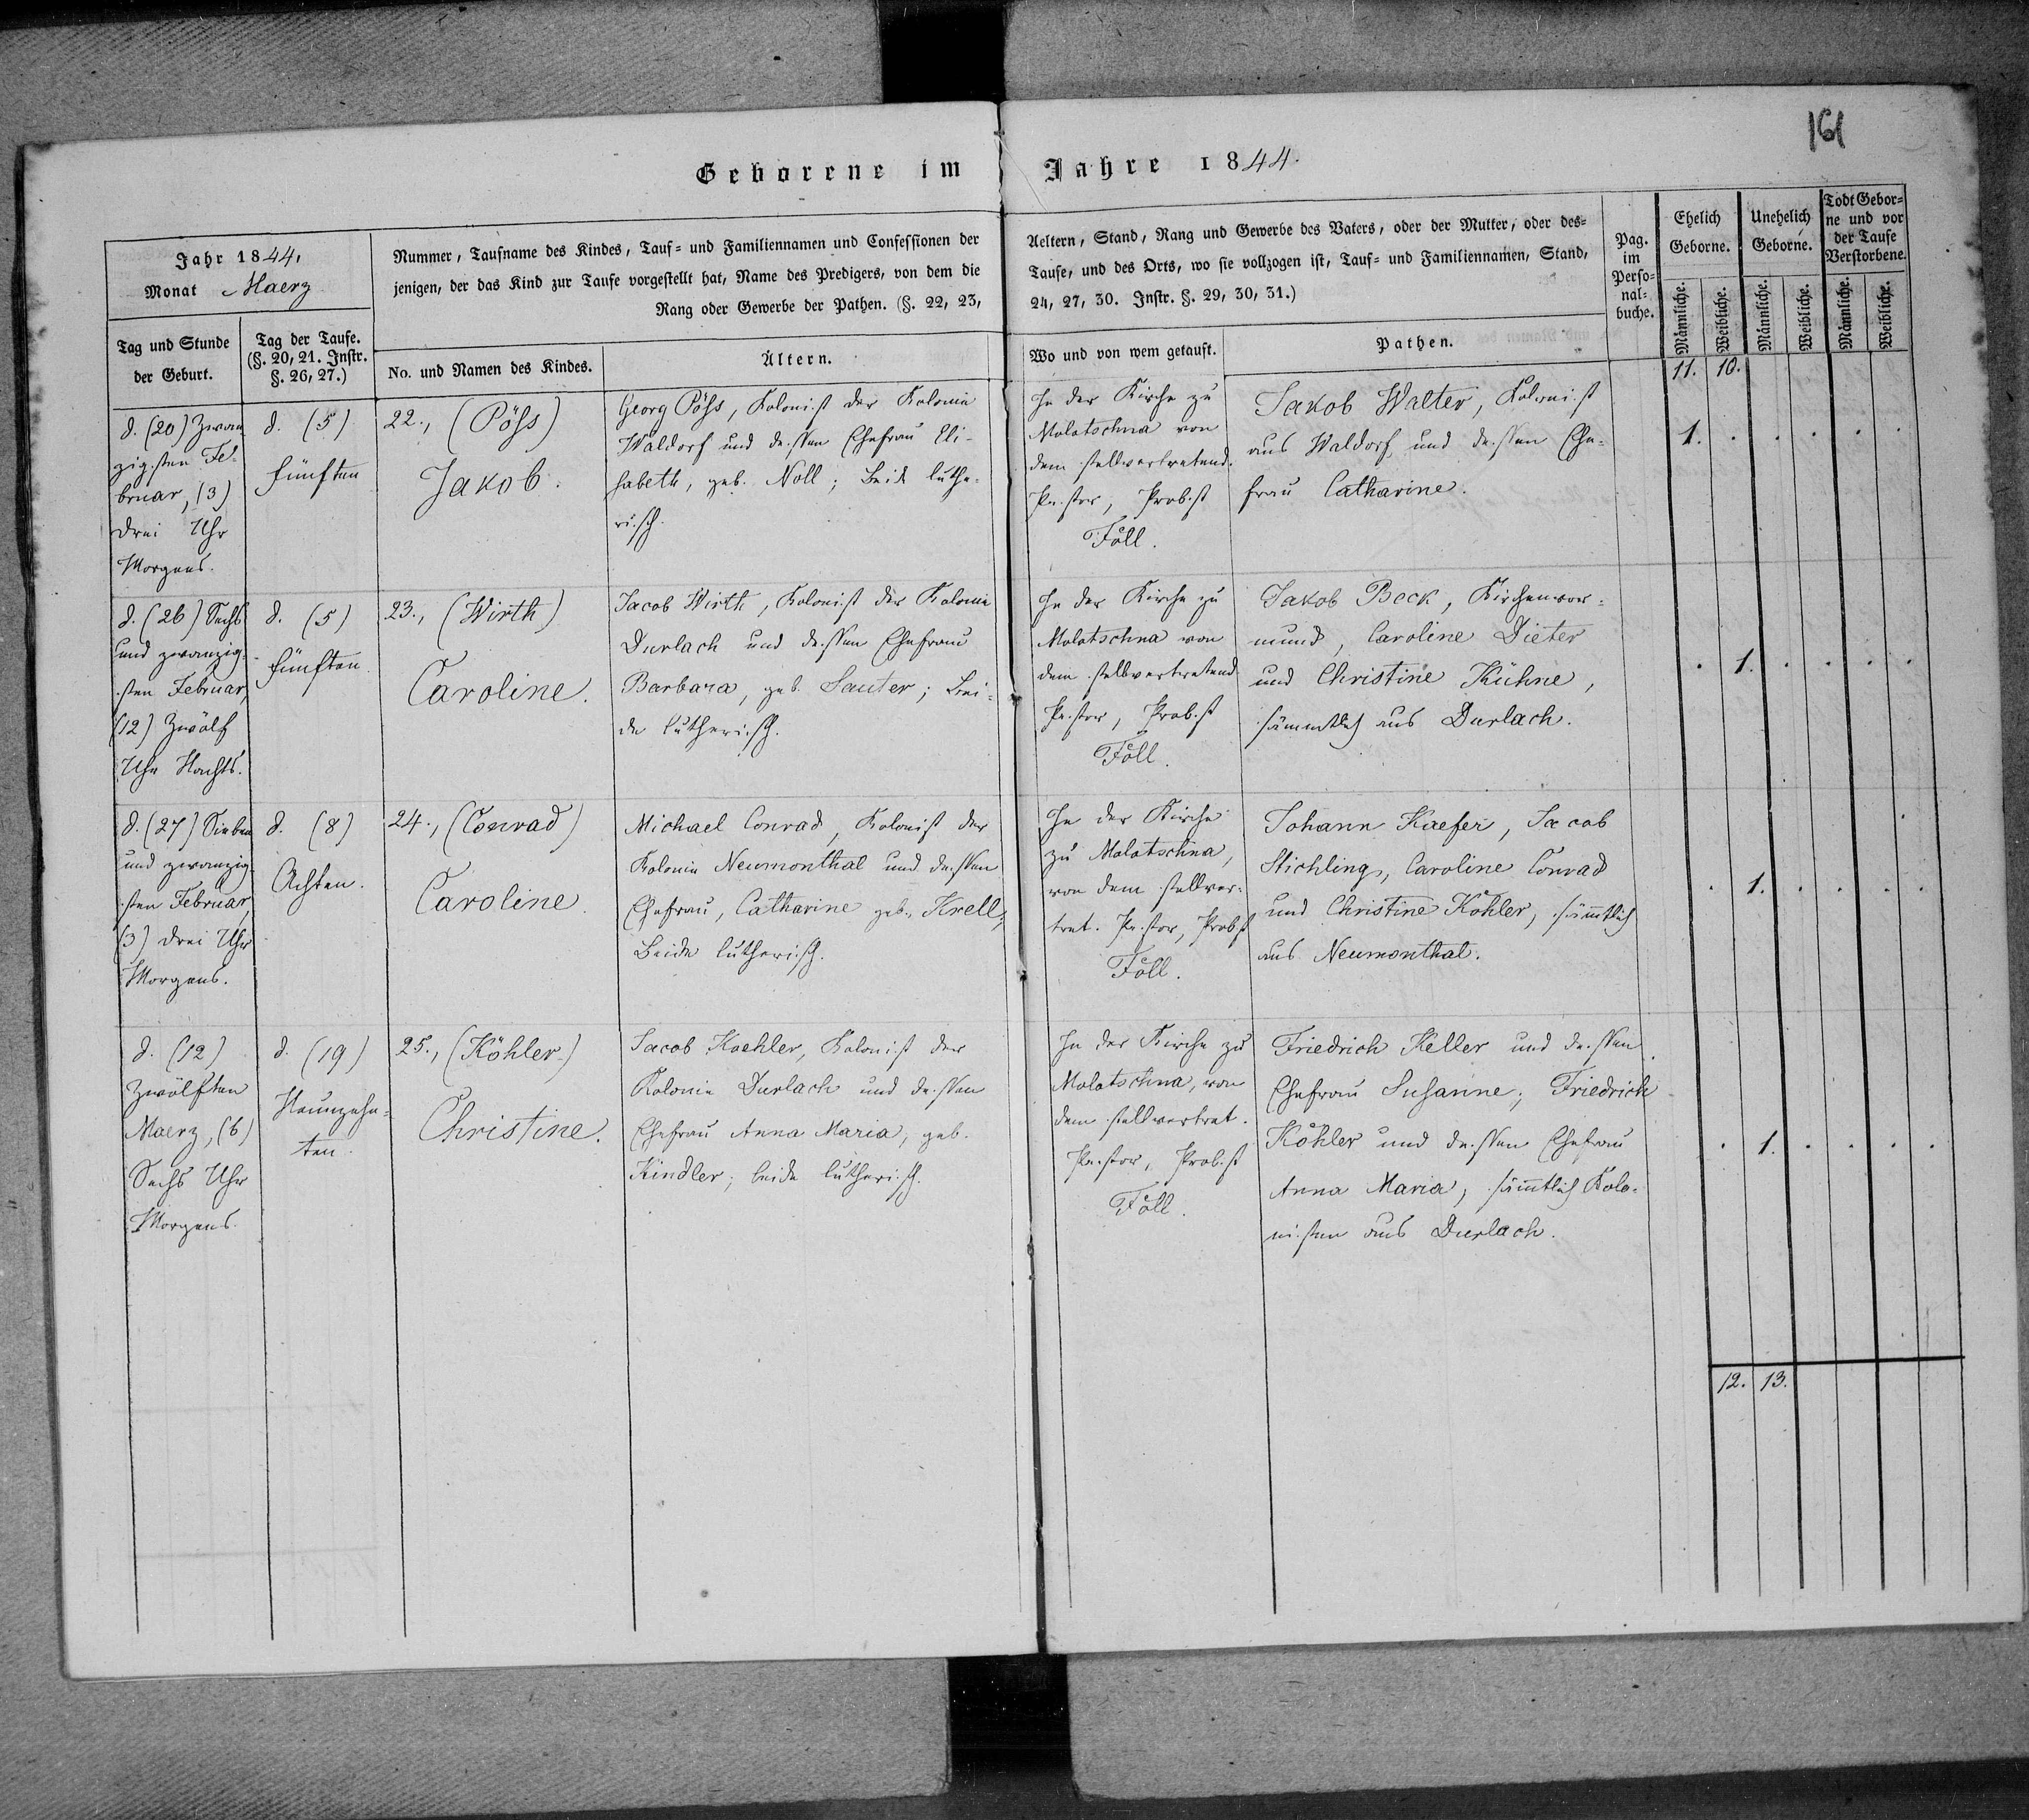 161
Geborene im Jahre 1844.
Jahr 1844,
Monat Maerz
Nummer, Taufname des Kindes, Tauf- und Familiennamen und Confessionen der
jenigen, der das Kind zur Taufe vorgestellt hat, Name des Predigers, von dem die
Rang oder Gewerbe der Pathen. (§. 22, 23,
Aeltern, Stand, Rang und Gewerbe des Vaters, oder der Mutter, oder des-
Taufe, und des Orts, wo sie vollzogen ist, Tauf- und Familiennamen, Stand,
24, 27, 30. Instr. §. 29, 30, 31.)
Pag.
im
Perso-
nal-
buche.
Ehelich
Geborne.
Unehelich
Geborne.
Todt Gebor-
ne und vor
der Taufe
Verstorbene.
Männliche.
Weibliche.
Männliche.
Weibliche.
Männliche.
Weibliche.
Tag und Stunde
der Geburt.
Tag der Taufe.
(§. 20, 21. Instr.
§. 26, 27.)
No. und Namen des Kindes.
Ältern.
Wo und von wem getauft.
Pathen.
11. 10.
d. (20) Zwan
zigsten Fe-
bruar, (3)
drei Uhr
Morgens.
d. (5)
fünften
22., (Pöss)
Jakob.
Georg Pöss, Kolonist der Kolonie
Waldorf und dessen Ehefrau Eli-
sabeth, geb. Noll; Beide luthe-
risch.
In der Kirche zu
Molotschna von
dem stellvertretend.
Pastor, Probst
Föll.
Jakob Walter, Kolonist
aus Waldorf und dessen Ehe-
frau Catharine.
1. . . . . .
d. (26) Sechs
und zwanzig-
sten Februar,
(12) Zwölf
Uhr Nachts.
d. (5)
fünften.
23., (Wirth)
Caroline.
Jacob Wirth, Kolonist der Kolonie
Durlach und dessen Ehefrau
Barbara, geb. Sauter; Bei-
de lutherisch.
In der Kirche zu
Molotschna von
dem stellvertretend
Pastor, Probst
Föll.
Jakob Beck, Kirchenvor-
mund, Caroline Dieter
und Christine Kühne,
sämmtlich aus Durlach.
. 1. . . . .
d. (27) Sieben
und zwanzig-
sten Februar,
(3) drei Uhr
Morgens.
d. (8)
Achten.
24., (Conrad)
Caroline.
Michael Conrad, Kolonist der
Kolonie Neumonthal und dessen
Ehefrau, Catharine geb. Krell;
Beide lutherisch.
In der Kirche
zu Molotschna,
von dem stellver-
tret. Pastor, Probst
Föll.
Johann Kaefer, Jacob
Stichling, Caroline Conrad
und Christine Köhler, sämtlich
aus Neumonthal.
. 1. . . . .
d. (12)
Zwölften
Maerz, (6)
Sechs Uhr
Morgens.
d. (19)
Neunzehn-
ten.
25., (Köhler.)
Christine.
Jacob Koehler, Kolonist der
Kolonie Durlach und dessen
Ehefrau Anna Maria, geb.
Kindler; beide lutherisch.
In der Kirche zu
Molotschna, von
dem stellvertret.
Pastor, Probst
Föll.
Friedrich Keller und dessen
Ehefrau Susanne; Friedrich
Köhler und dessen Ehefrau
Anna Maria; sämtlich Kolo-
nisten aus Durlach.
. 1. . . . .
12. 13.